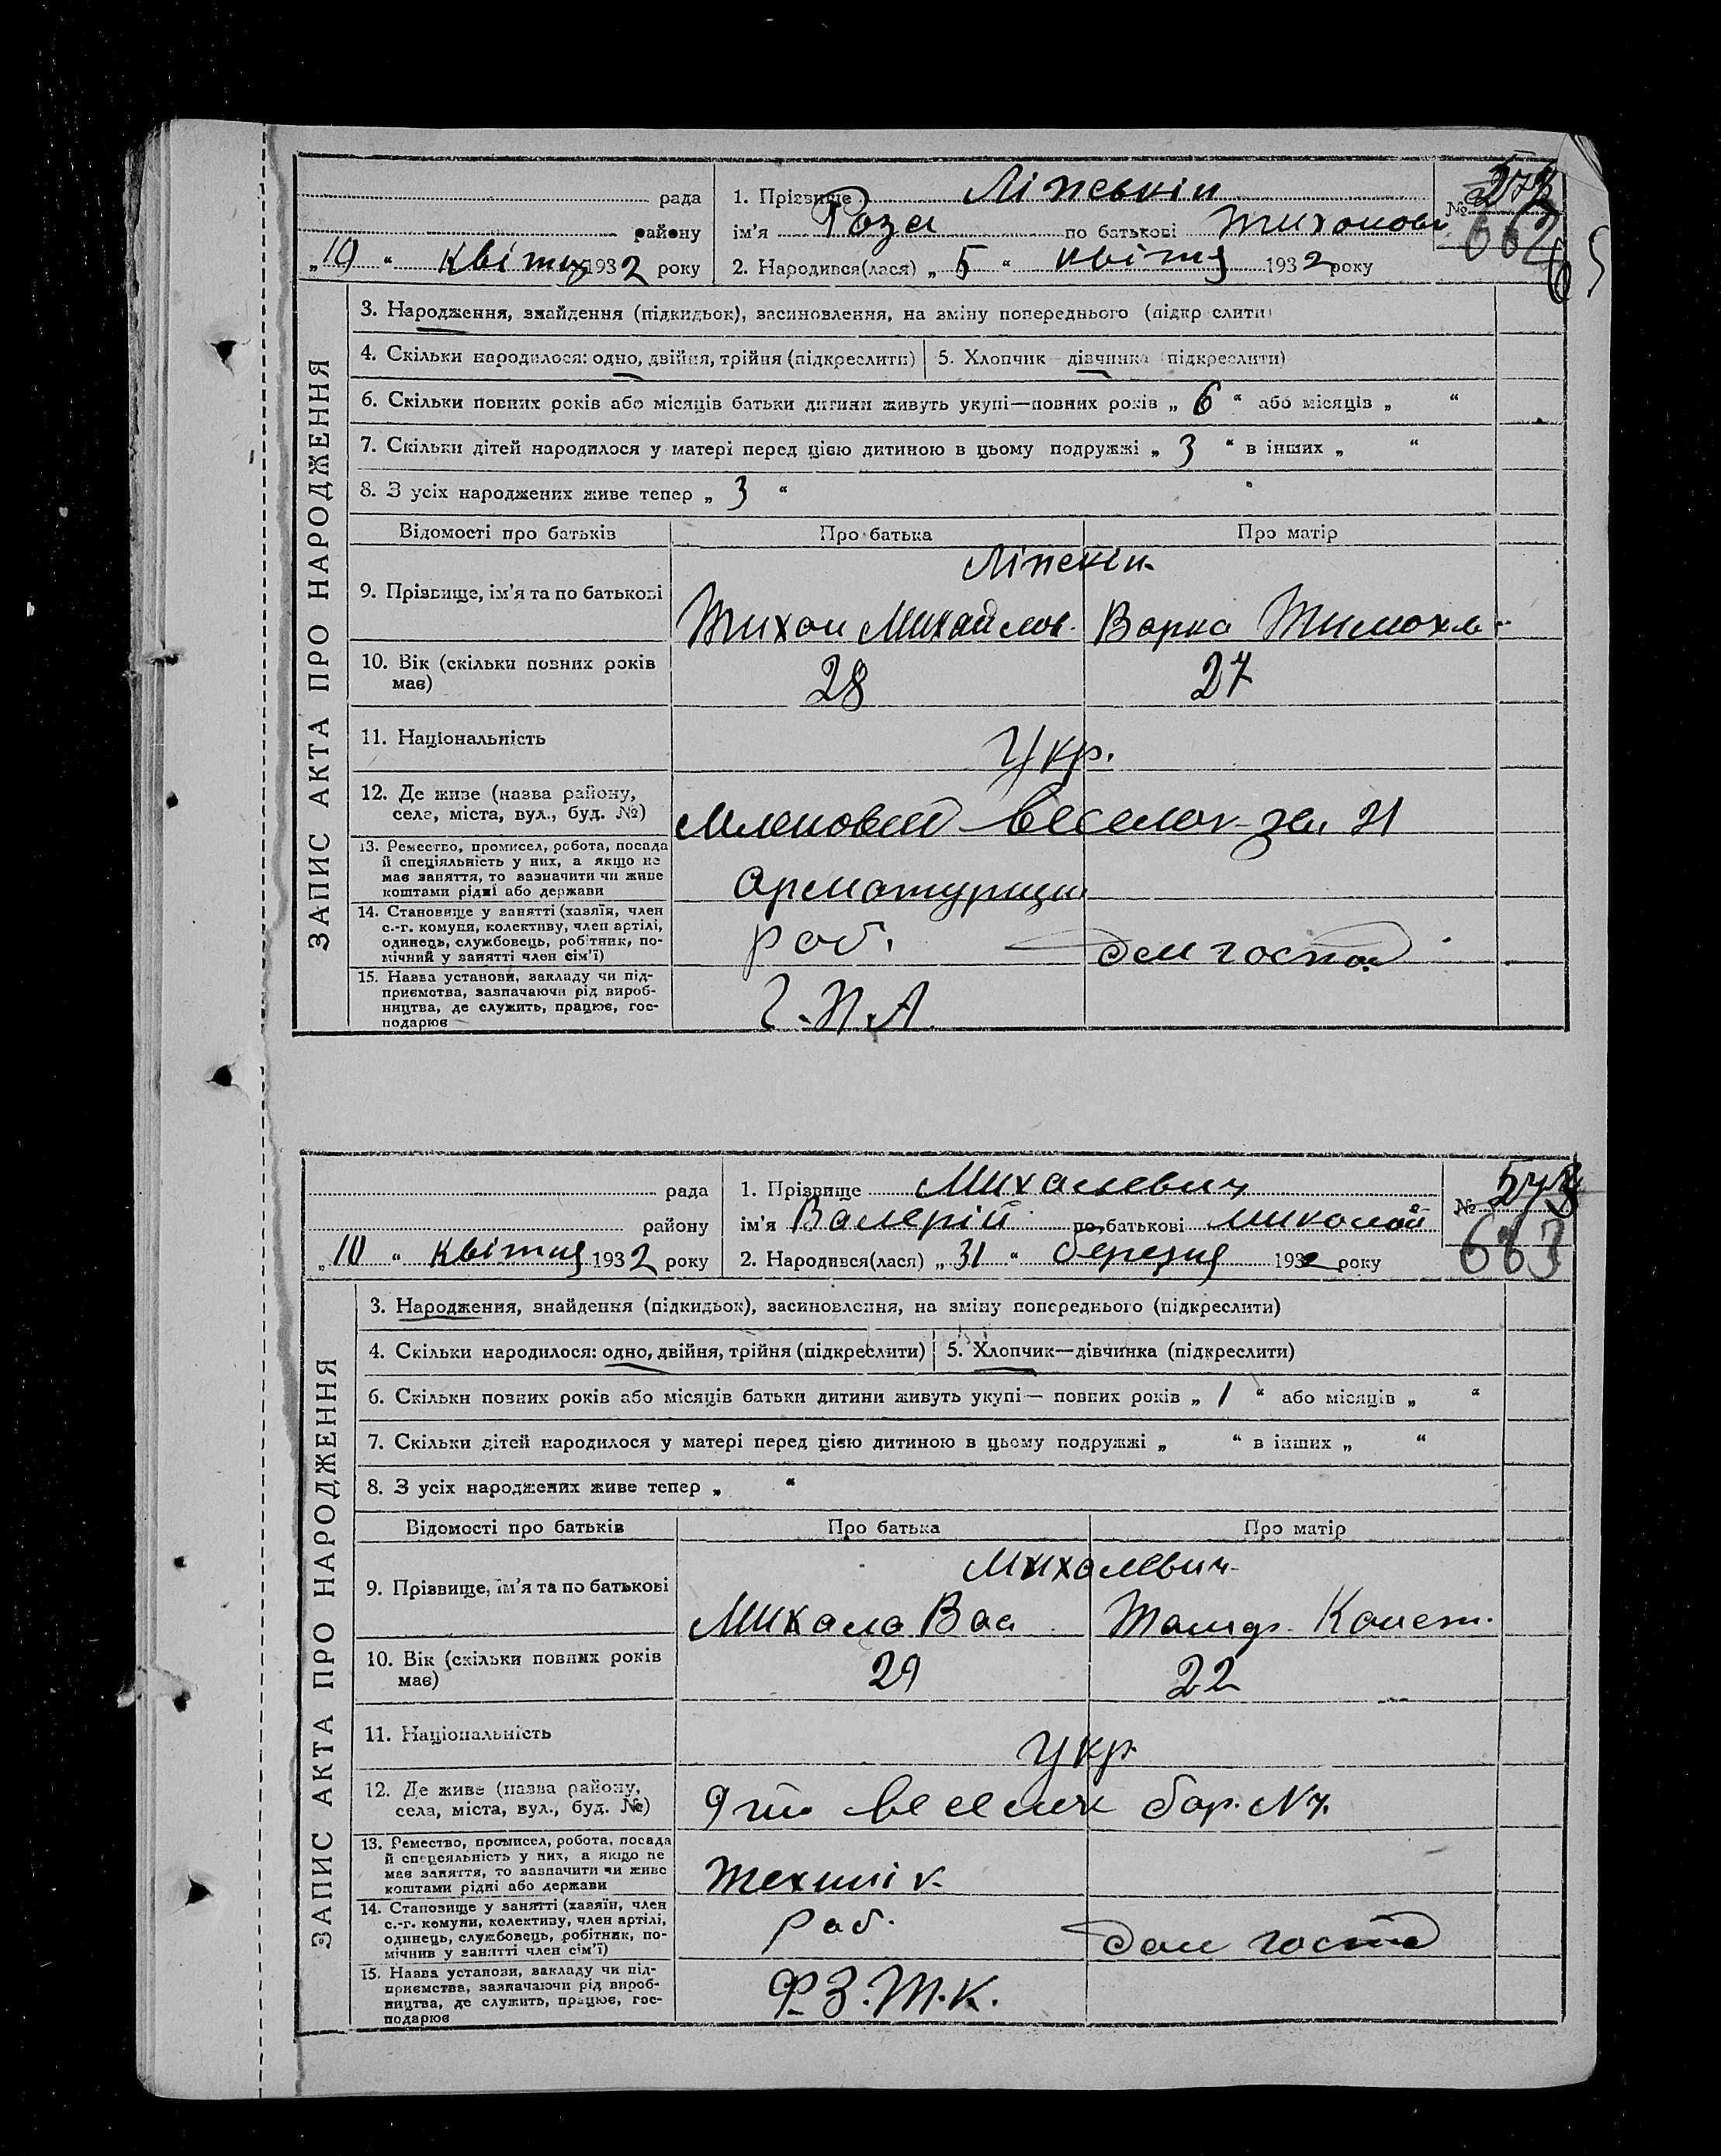 рада
району
„10 “ квітня 1932 року
1. Прізвище Ліпськін
ім'я Роза по батькові Тихоновн
2. Народився(лася) „ 5 “ квітня 1932 року
№
662
ЗАПИС АКТА ПРО НАРОДЖЕННЯ
3. Народження, знайдення (підкидьок), засиновлення, на зміну попереднього (підкр слити)
4. Скільки народилося: одно, двійня, трійня (підкреслити) 5. Хлопчик дівчинка (підкреслити)
6. Скільки повних років або місяців батьки дитини живуть укупі—повних років „ 6 “ або місяців „ “
7. Скільки дітей народилося у матері перед цією дитиною в цьому подружжі „ 3 “ в інших „ “
8. З усіх народжених живе тепер „ 3 “
Відомості про батьків Про батька Про матір
Ліпскін
9. Прізвище, ім'я та по батькові Тихон Михайлов. Варка Тимохв.
10. Вік (скільки повних років має) 28 27
11. Національність Укр.
12. Де живе (назва району, села, міста, вул., буд. №) 21
13. Ремество, промисел, робота, посада
й спеціяльність у них, а якщо не
має заняття, то зазначити чи живе
коштами рідні або держави
Арматурщик
14. Становище у занятті (хазяїн, член
с.-г. комуни, колективу, член артілі,
одинець, службовець, робітник, по-
мічний у занятті член сім'ї)
роб. дом господ
15. Назва установи, закладу чи під-
приємства, зазначаючи рід вироб-
ництва, де служить, працює, гос-
подарює
рада
району
„10 “ квітня 1932 року
1. Прізвище Михалевич
ім'я Валерій по батькові Миколай
2. Народився(лася) „ 31 “ березня 1932 року
№
683
ЗАПИС АКТА ПРО НАРОДЖЕННЯ
3. Народження, знайдення (підкидьок), засиновлення, на зміну попереднього (підкреслити)
4. Скільки народилося: одно, двійня, трійня (підкреслити) 5. Хлопчик—дівчинка (підкреслити)
6. Скільки повних років або місяців батьки дитини живуть укупі— повних років „ 1 “ або місяців „ “
7. Скільки дітей народилося у матері перед цією дитиною в цьому подружжі „ “ в інших „ “
8. З усіх народжених живе тепер „ “
Відомості про батьків Про батька Про матір
Михалевич
9. Прізвище, ім'я та по батькові Микола Вас Конст.
10. Вік (скільки повних років має) 29 22
11. Національність Укр
12. Де живе (назва району,
села, міста, вул., буд. №)
бар. №7.
13. Ремество, промисел, робота, посада
й спецсяльність у них, а якщо не
має заняття, то зазначити чи живе
коштами рідні або держави
Технік
14. Становище у занятті (хазяїн, член
с.-г. комуни, колективу, член артілі,
одинець, службовець, робітник, по-
мічнив у занятті член сім'ї)
роб. дом госпо
15. Назва установи, закладу чи під-
приємства, зазначаючи рід вироб-
ництва, де служить, працює, гос-
подарює
Ф.З.Т.К.